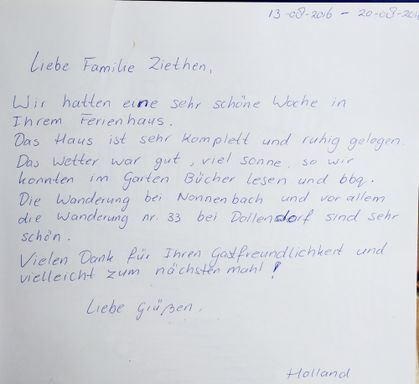 13-08-2016 - 20-08-201
Liebe Familie Ziethen,
Wir hatten eine sehr schöne Woche in
Ihrem Ferienhaus.
Das Haus ist sehr komplett und ruhig gelegen.
Das Wetter war gut, viel sonne, so wir
konnten im Garten Bücher lesen und bbq.
Die Wanderung bei Nonnenbach und vor allem
die Wanderung nr. 33 bei Dollendorf sind sehr
schön.
Vielen Dank für Ihren Gastfreundlichkeit und
vielleicht zum nächsten mahl!
Liebe Grüßen,
Holland